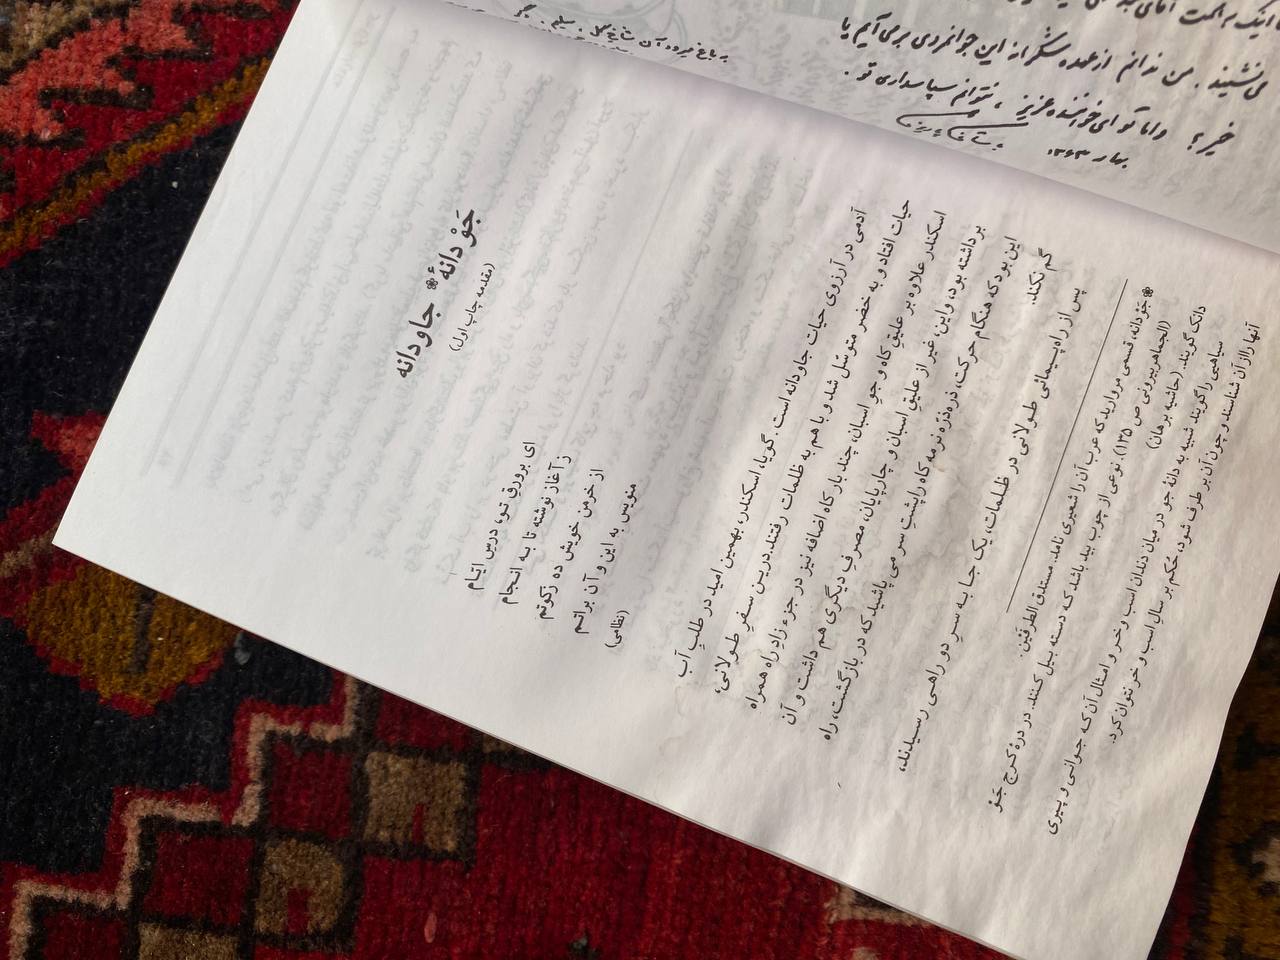 می‌نشیند. من ندانم از عهده شکرانه این جوانمردی برمی‌آیم یا
خیر؛ و اما تو ای خواننده عزیز، نتوانم سپاسداری تو.
بهار ۱۳۶۳
جَوْ دانهٔ❀ جاودانه
(مقدمه چاپ اول)
ای برورق تو، درسِ ایّام
ز آغاز نوشته تا به انجام
از خرمن خویش ده زکوتم
منویس به این و آن براتم
(نظامی)
آدمی در آرزوی حیات جاودانه است. گویا، اسکندر، بهمین امید در طلبِ آب
حیات افتاد و به خضر متوسّل شد و با هم به ظلمات رفتند. درین سفرِ طولانی،
اسکندر علاوه بر علیقِ کاه و جوِ اسبان، چند بار کاه اضافه نیز در جزء زادِ راه همراه
برداشته بود، و این، غیر از علیقِ اسبان و چارپایان، مصرفِ دیگری هم داشت و آن
این بود که هنگام حرکت، ذره‌ذرّه نرمه کاه را پشتِ سر می پاشید که در بازگشت، راه
گم نکند.
پس از راه‌پیمائی طولانی در ظلمات، یک جا به سرِ دو راهی رسیدند،
❀ جَوْ دانه، قسمی مروارید که عرب آن را شعیری نامد. مستدق الطرفین.
(الجماهر بیرونی ص ۱۳۵). نوعی از چوب بید باشد که دسته بیل کنند. در درهٔ کرج جَوْ
دانک گویند. (حاشیه برهان)
سیاهیی را گویند شبیه به دانهٔ جو در میان دندان اسب و خر و امثال آن که جوانی و پیری
آنها را از آن شناسند و چون آن بر طرف شود، حکم بر سالِ اسب و خر نتوان کرد.